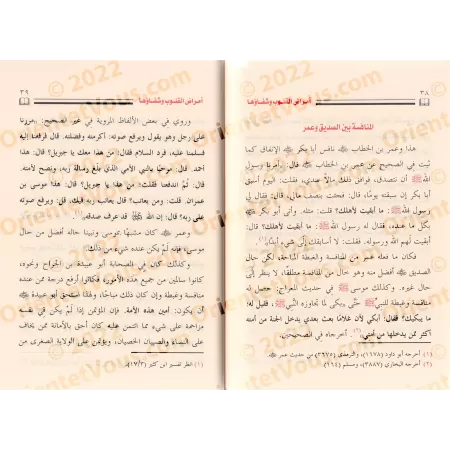 ٣٨
أمراض القلوب وشفاؤها
المنافسة بين الصديق وعمر
هذا وعمر بن الخطاب ﷺ نافس أبا بكر ﷺ الإنفاق كما
ثبت في الصحيح عن عمر بن الخطاب ﷺ قال: أمرنا رسول
الله ﷺ أن نتصدق، فوافق ذلك مالاً عندي، فقلت: اليوم أسبق
أبا بكر إن سبقته يومًا، قال: فجئت بنصف مالي، قال: فقال لي
رسول الله ﷺ: ما أبقيت لأهلك؟ قلت: مثله. وأتى أبو بكر ﷺ
بكل ما عنده، فقال له رسول الله ﷺ: ما أبقيت لأهلك؟ قال:
أبقيت لهم الله ورسوله. فقلت: لا أسابقك إلى شيء أبدًا(١).
فكان ما فعله عمر من المنافسة والغبطة المباحة، لكن حال
الصديق ﷺ أفضل منه وهو خال من المنافسة مطلقًا، لا ينظر إلى
حال غيره. وكذلك موسى ﷺ في حديث المعراج: حصل له
منافسة وغبطة للنبي ﷺ حتى بكى لما تجاوزه النبي ﷺ، فقيل له:
ما يبكيك؟ فقال: أبكي لأن غلامًا بعث بعدي يدخل الجنة من أمته
أكثر ممن يدخلها من أمتي، أخرجاه في الصحيحين(٢).
(١) أخرجه أبو داود (١٦٧٨)، والترمذي (٣٩٧٥) من حديث عمر ﷺ.
(٢) أخرجه البخاري (٣٨٨٧)، ومسلم (١٦٤).
٣٩
أمراض القلوب وشفاؤها
وروي في بعض الألفاظ المروية في غير الصحيح: «مررنا
على رجل وهو يقول ويرفع صوته: أكرمته وفضلته. قال فرفعنا إليه
فسلمنا عليه، فرد السلام فقال: من هذا معك يا جبريل؟ قال: هذا
أحمد. قال: مرحبًا بالنبي الأمي الذي بلغ رسالة ربه، ونصح لأمته.
قال: ثم اندفعنا فقلت: من هذا يا جبريل؟ قال: هذا موسى بن
عمران. قلت: ومن يعاتب؟ قال: يعاتب ربه فيك. قلت: ويرفع صوته
على ربه؟ قال: إن الله ﷻ قد عرف صدقه».
وعمر ﷺ كان مشبهًا بموسى ونبينا حاله أفضل من حال
موسى، فإنه لم يكن عنده شيء من ذلك(١).
وكذلك كان في الصحابة أبو عبيدة بن الجراح ونحوه،
كانوا سالمين من جميع هذه الأمور، فكانوا أرفع درجة ممن عنده
منافسة وغبطة وإن كان ذلك مباحًا، ولهذا استحق أبو عبيدة ﷺ
أن يكون: أمين هذه الأمة. فإن المؤتمن إذا لم يكن في نفسه
مزاحمة على شيء مما اؤتمن عليه كان أحق بالأمانة ممن يخاف
على النساء والصبيان الخصيان، ويؤتمن على الولاية الصغرى من
(١) انظر تفسير ابن كثير (١٧/٣).
© 2022
OrientetVous.com